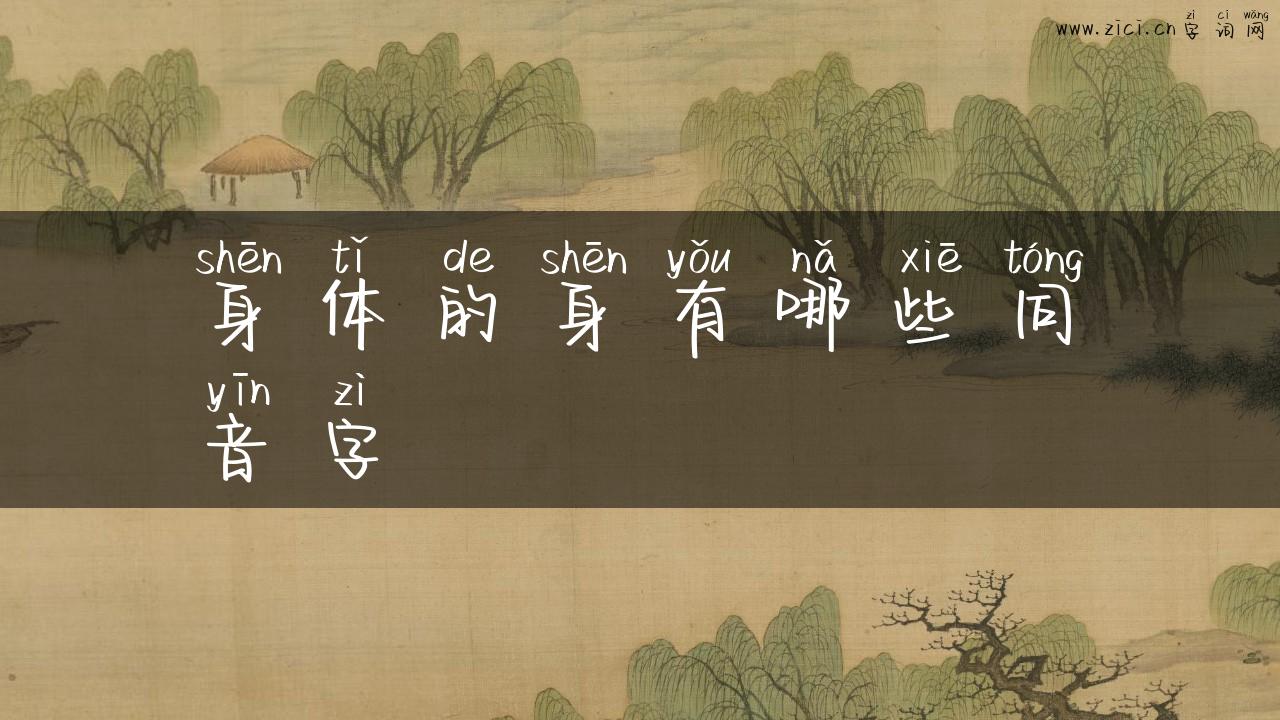 zì cí wǎng
www.zici.cn 字词网
shēn tǐ de shēn yǒu nǎ xiē tóng
身体的身有哪些同
yīn zì
音字